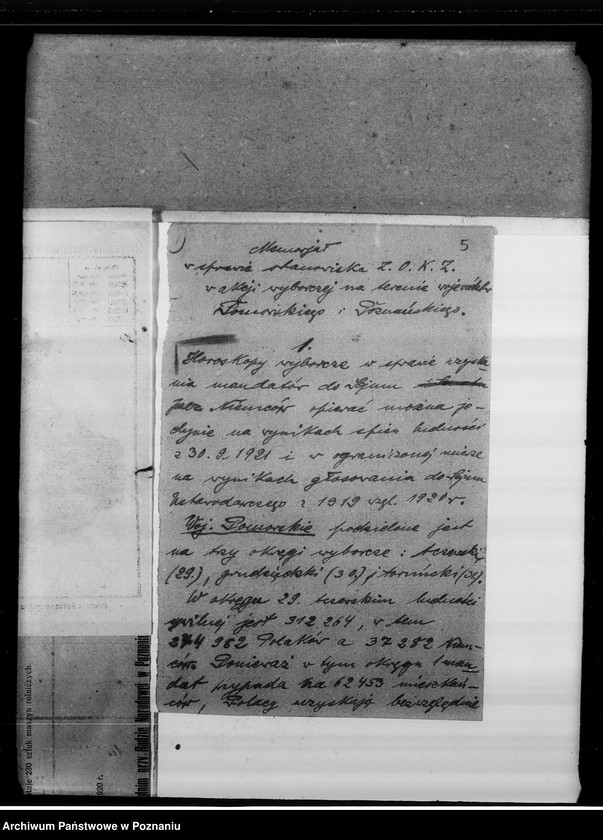 5
Memorjał
w sprawie stanowiska Z. O. K. Z.
w akcji wyborczej na terenie województw
Pomorskiego i Poznańskiego.
1.
Horoskopy wyborcze w sprawie uzyska-
nia mandatów do Sejmu
przez Niemców opierać można je-
dynie na wynikach spisu ludności
z 30. 9. 1921 i w ograniczonej mierze
na wynikach głosowania do Sejmu
Ustawodawczego z 1919 wzgl. 1920 r.
Woj. Pomorskie podzielone jest
na trzy okręgi wyborcze: tczewski
(29.), grudziądzki (30.) i toruński (31).
W okręgu 29. tczewskim ludności
cywilnej jest 312 264, w tem
274 982 Polaków a 37 282 Niem-
ców. Ponieważ w tym okręgu 1 man-
dat przypada na 62 453 mieszkań-
ców, Polacy uzyskają bezwzględnie
tnie 230 sztuk maszyn rolniczych
1920 r.
przy Radzie Narodowej w Poznaniu
Archiwum Państwowe w Poznaniu